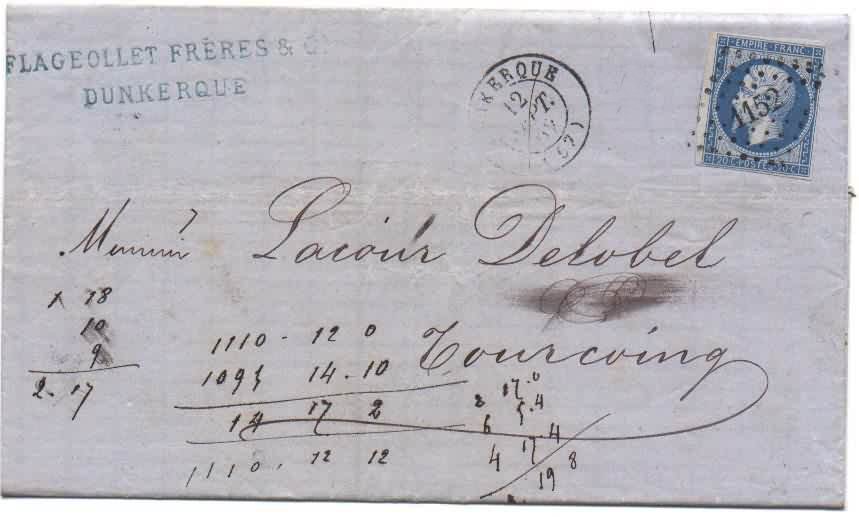 FLAGEOLLET FRÈRES & C
DUNKERQUE
KERQUE
12
PT.
(57)
EMPIRE FRANC
1152
20 C POSTE 20 C
Lacour Delobel
Tourcoing
1 18
10
9
2. 17
1110 - 12 0
1093 14 - 10
14 17 2
1110. 12 12
8 17.0
6 5.4
4 17 4
19 8